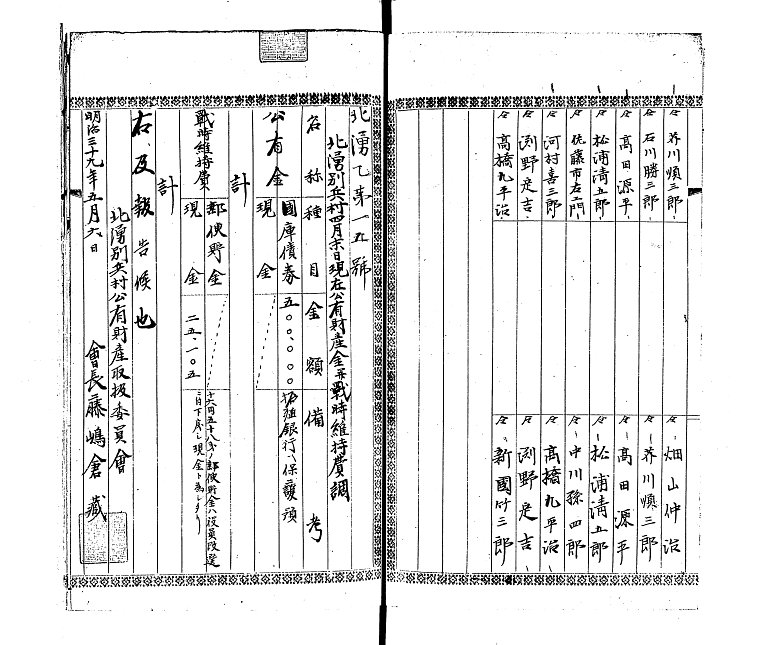 仝 芥川慎三郎
仝 石川勝三郎
仝 高田源平
仝 松浦清五郎
仝 佐藤市右エ門
仝 河村喜三郎
仝 渕野定吉
仝 高橋九平治
仝 畑山仲治
仝 芥川慎三郎
仝 高田源平
仝 松浦清五郎
仝 中川孫四郎
仝 高橋九平治
仝 渕野定吉
仝 新國竹三郎
北湧乙第一五號
北湧別兵村四月末日現在公有財産金并戰時維持費調
名称 種目 金額 備考
公有金 國庫債券 五〇〇,〇〇〇 拓殖銀行ヘ保護預
現金
計
戰時維持費 郵便貯金 十六円五十八銭ノ郵便貯金ハ役員改選
現金 二五,一〇五 ニ付下戻シ現金ト為シタリ
計
右及報告候也
明治三十九年五月六日
北湧別兵村公有財産取扱委員會
會長藤嶋倉藏